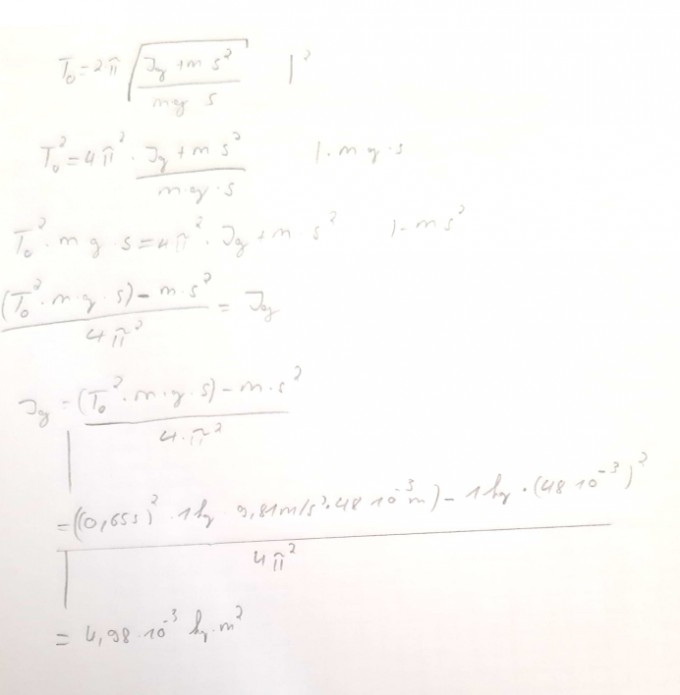 T₀ = 2π √((Jg + m s²)/(mg s)) |²
T₀² = 4π² · (Jg + m s²)/(m·g·s) | · m g · s
T₀² · m g · s = 4π² · Jg + m s² | - m s²
((T₀² · m · g · s) - m · s²)/(4π²) = Jg
Jg = ((T₀² · m · g · s) - m · s²)/(4·π²)
= ((0,65s)² · 1kg 9,81m/s² · 48 10⁻³ m) - 1kg · (48 10⁻³)²
4π²
= 4,98·10⁻³ kg·m²